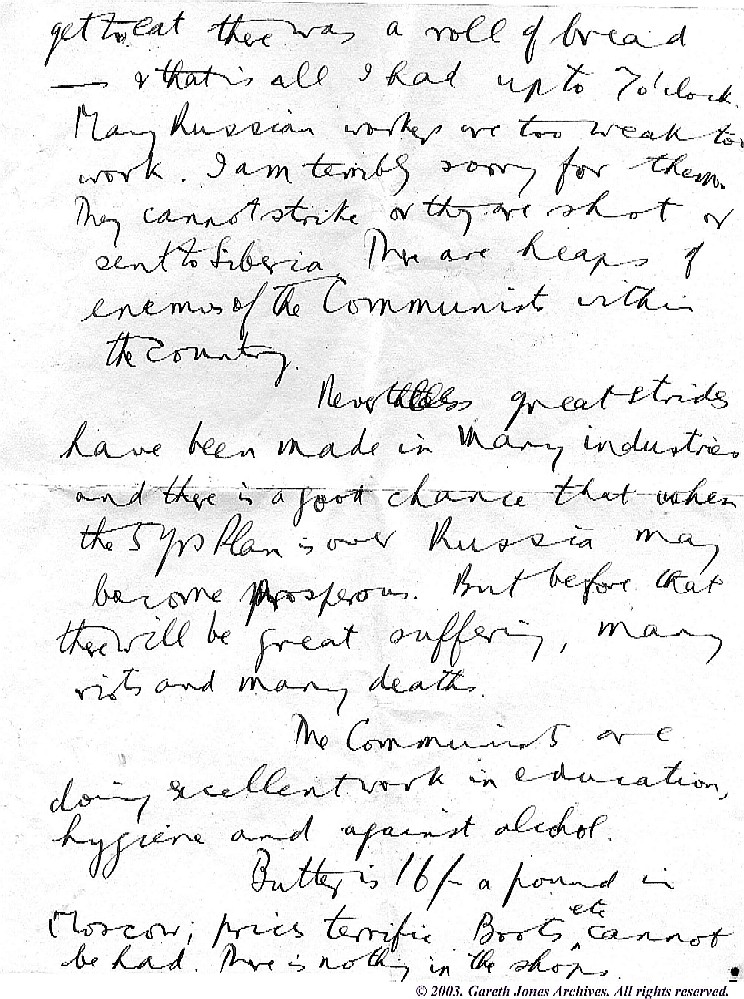 get to eat there was a roll of bread
— & that is all I had up to 7 o'clock.
Many Russian workers are too weak to
work. I am terribly sorry for them.
They cannot strike or they are shot or
sent to Siberia. There are heaps of
enemies of the Communists within
the country.
Nevertheless great strides
have been made in many industries
and there is a good chance that when
the 5 Yrs Plan is over Russia may
become prosperous. But before that
there will be great suffering, many
riots and many deaths.
The Communists are
doing excellent work in education,
hygiene and against alcohol.
Butter is 16/- a pound in
Moscow; prices terrific Boots etc cannot
be had. There is nothing in the shops.
© 2003. Gareth Jones Archives. All rights reserved.